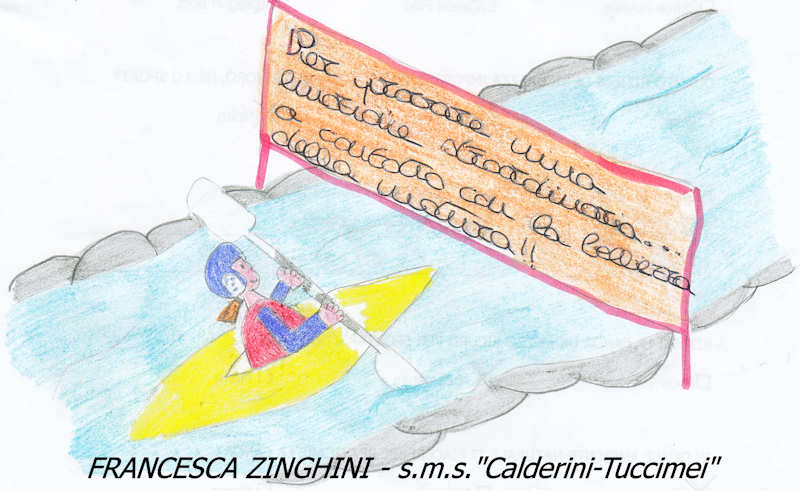 Per provare una
emozione straordinaria...
a contatto con la bellezza
della natura!!
FRANCESCA ZINGHINI - s.m.s."Calderini-Tuccimei"